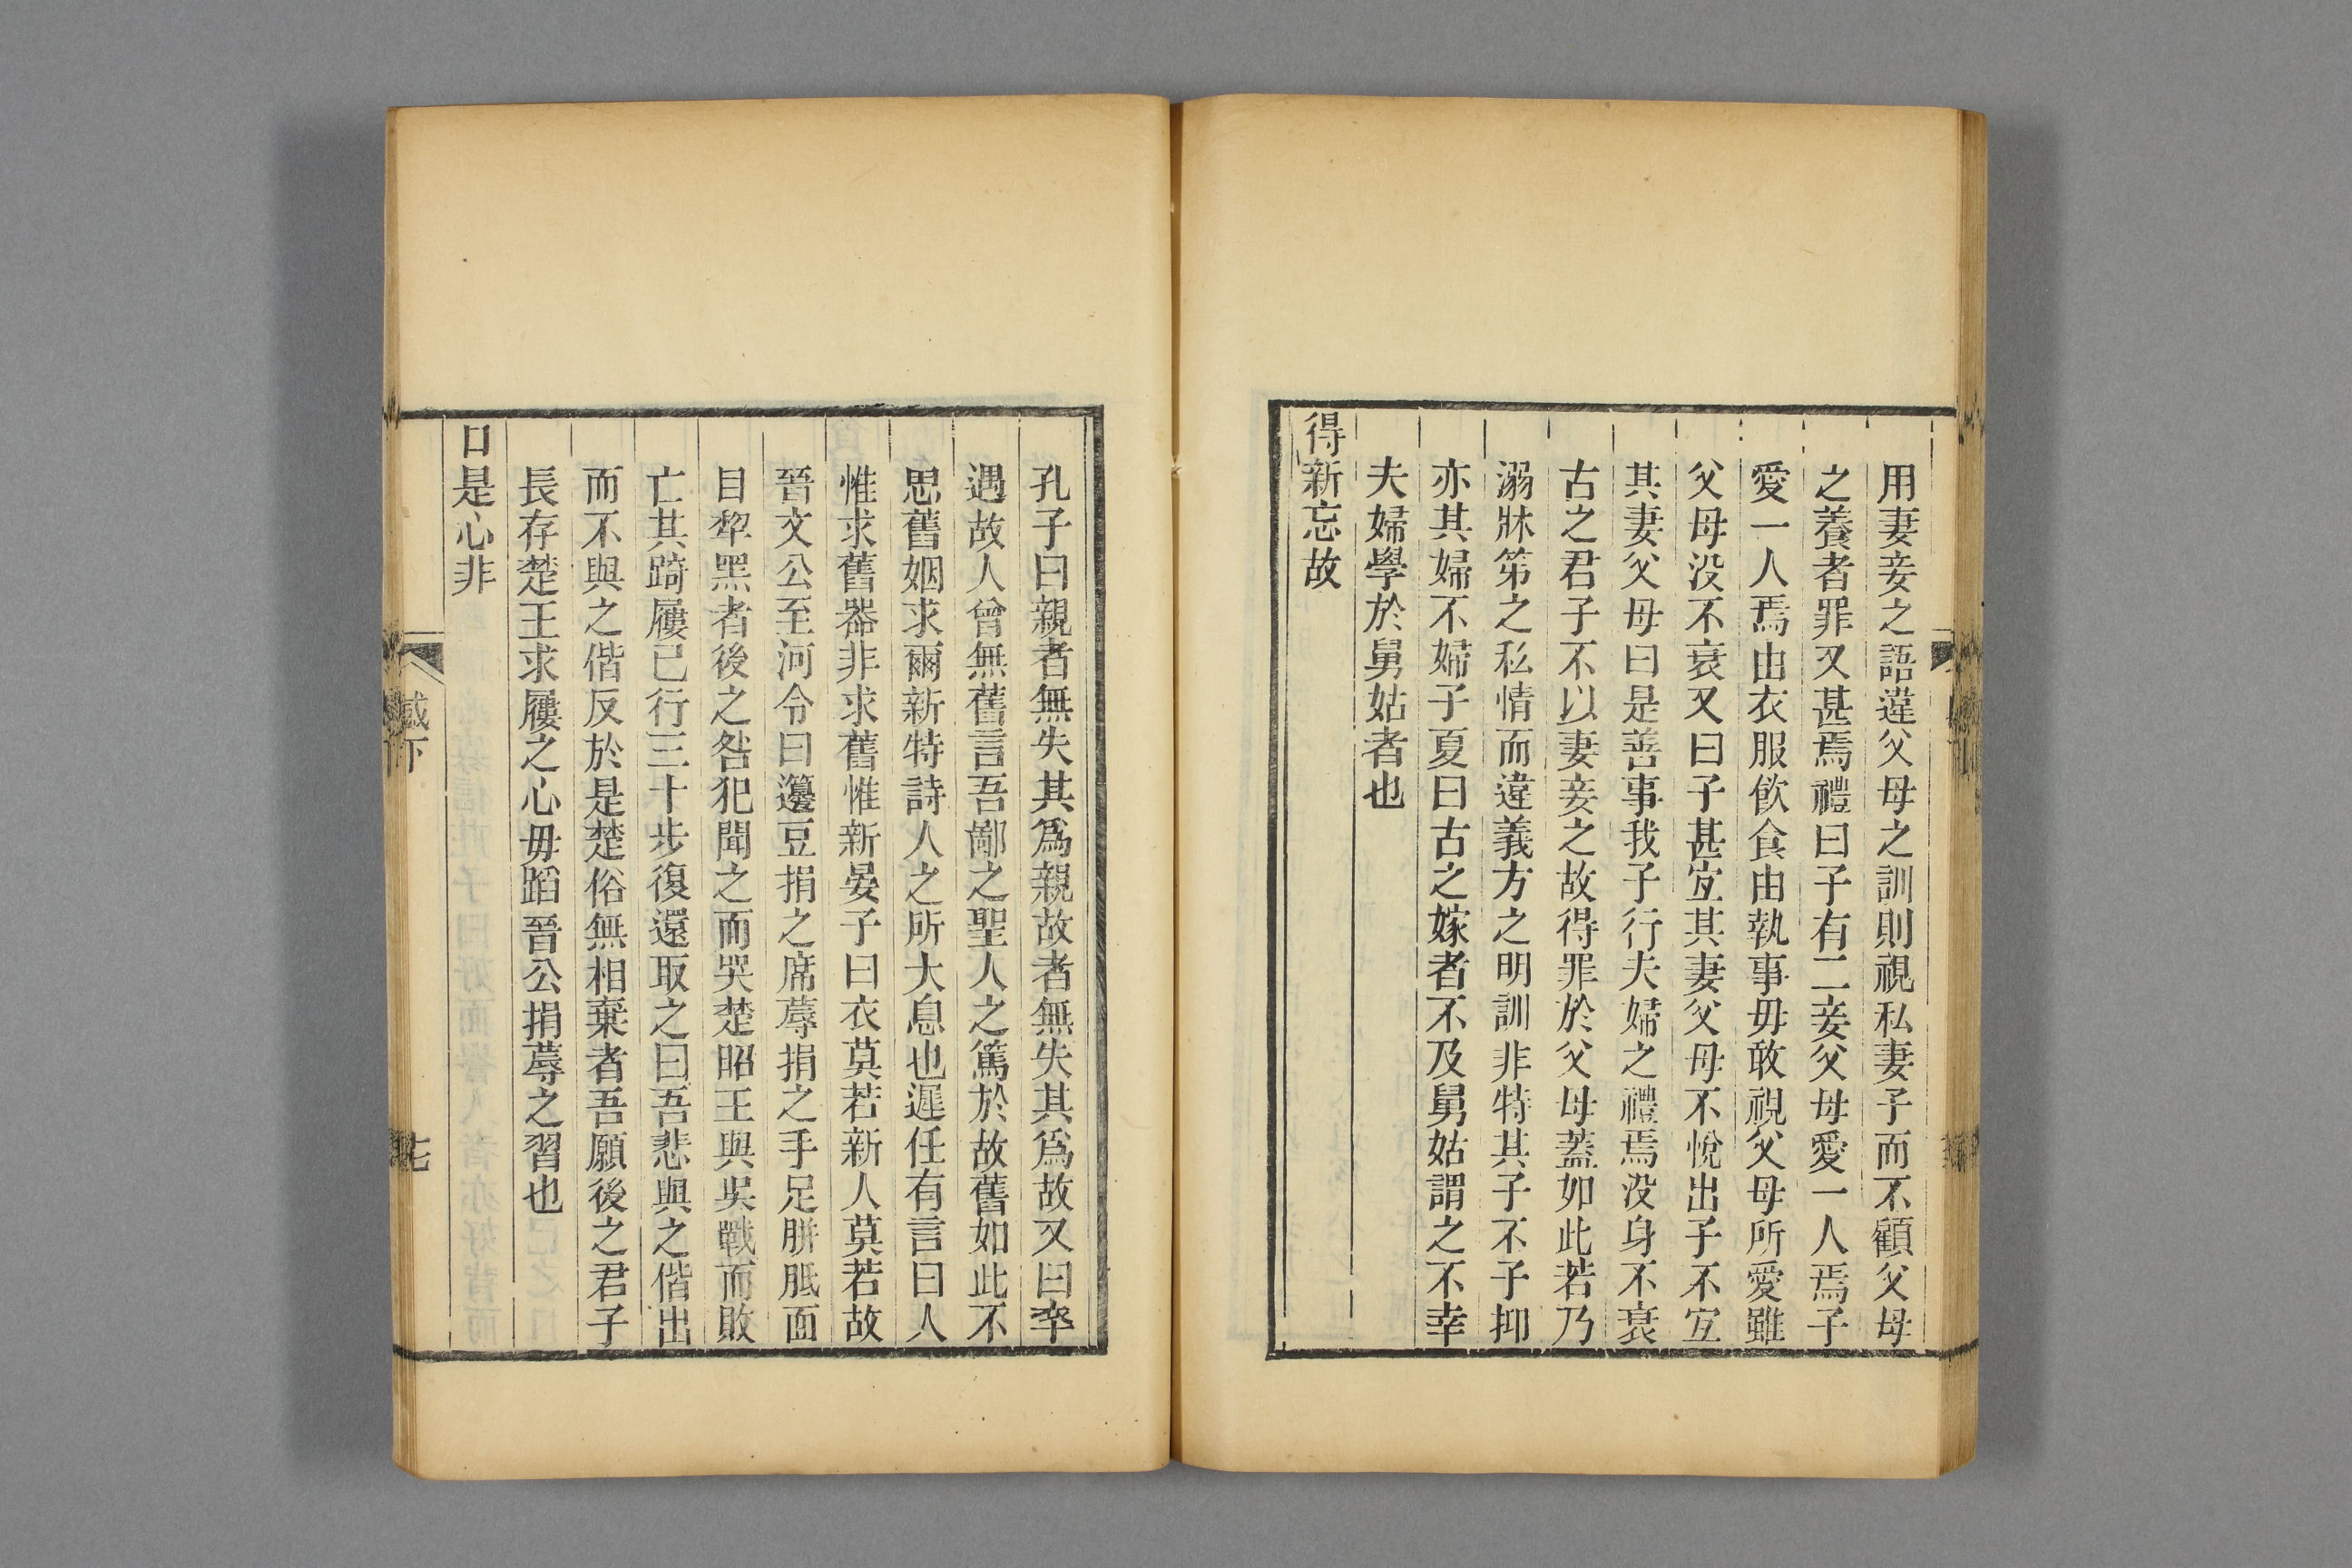 用妻妾之語違父母之訓則視私妻子而不顧父母
之養者罪又甚焉禮曰子有二妾父母愛一人焉子
愛一人焉由衣服飲食由執事毋敢視父母所愛雖
父母没不衰又曰子甚宜其妻父母不悅出子不宜
其妻父母曰是善事我子行夫婦之禮焉没身不衰
古之君子不以妻妾之故得罪於父母蓋如此若乃
溺牀笫之私情而違義方之明訓非特其子不子抑
亦其婦不婦子夏曰古之嫁者不及舅姑謂之不幸
夫婦學於舅姑者也
得新忘故
孔子曰親者無失其爲親故者無失其爲故又曰卒
遇故人曾無舊言吾鄙之聖人之篤於故舊如此不
思舊姻求爾新特詩人之所大息也遲任有言曰人
惟求舊器非求舊惟新晏子曰衣莫若新人莫若故
晉文公至河令曰籩豆捐之席蓐捐之手足胼胝面
目犂黑者後之咎犯聞之而哭楚昭王與吳戰而敗
亡其踦屨已行三十步復還取之曰吾悲與之偕出
而不與之偕反於是楚俗無相棄者吾願後之君子
長存楚王求屨之心毋蹈晉公捐蓐之習也
口是心非
感下
七